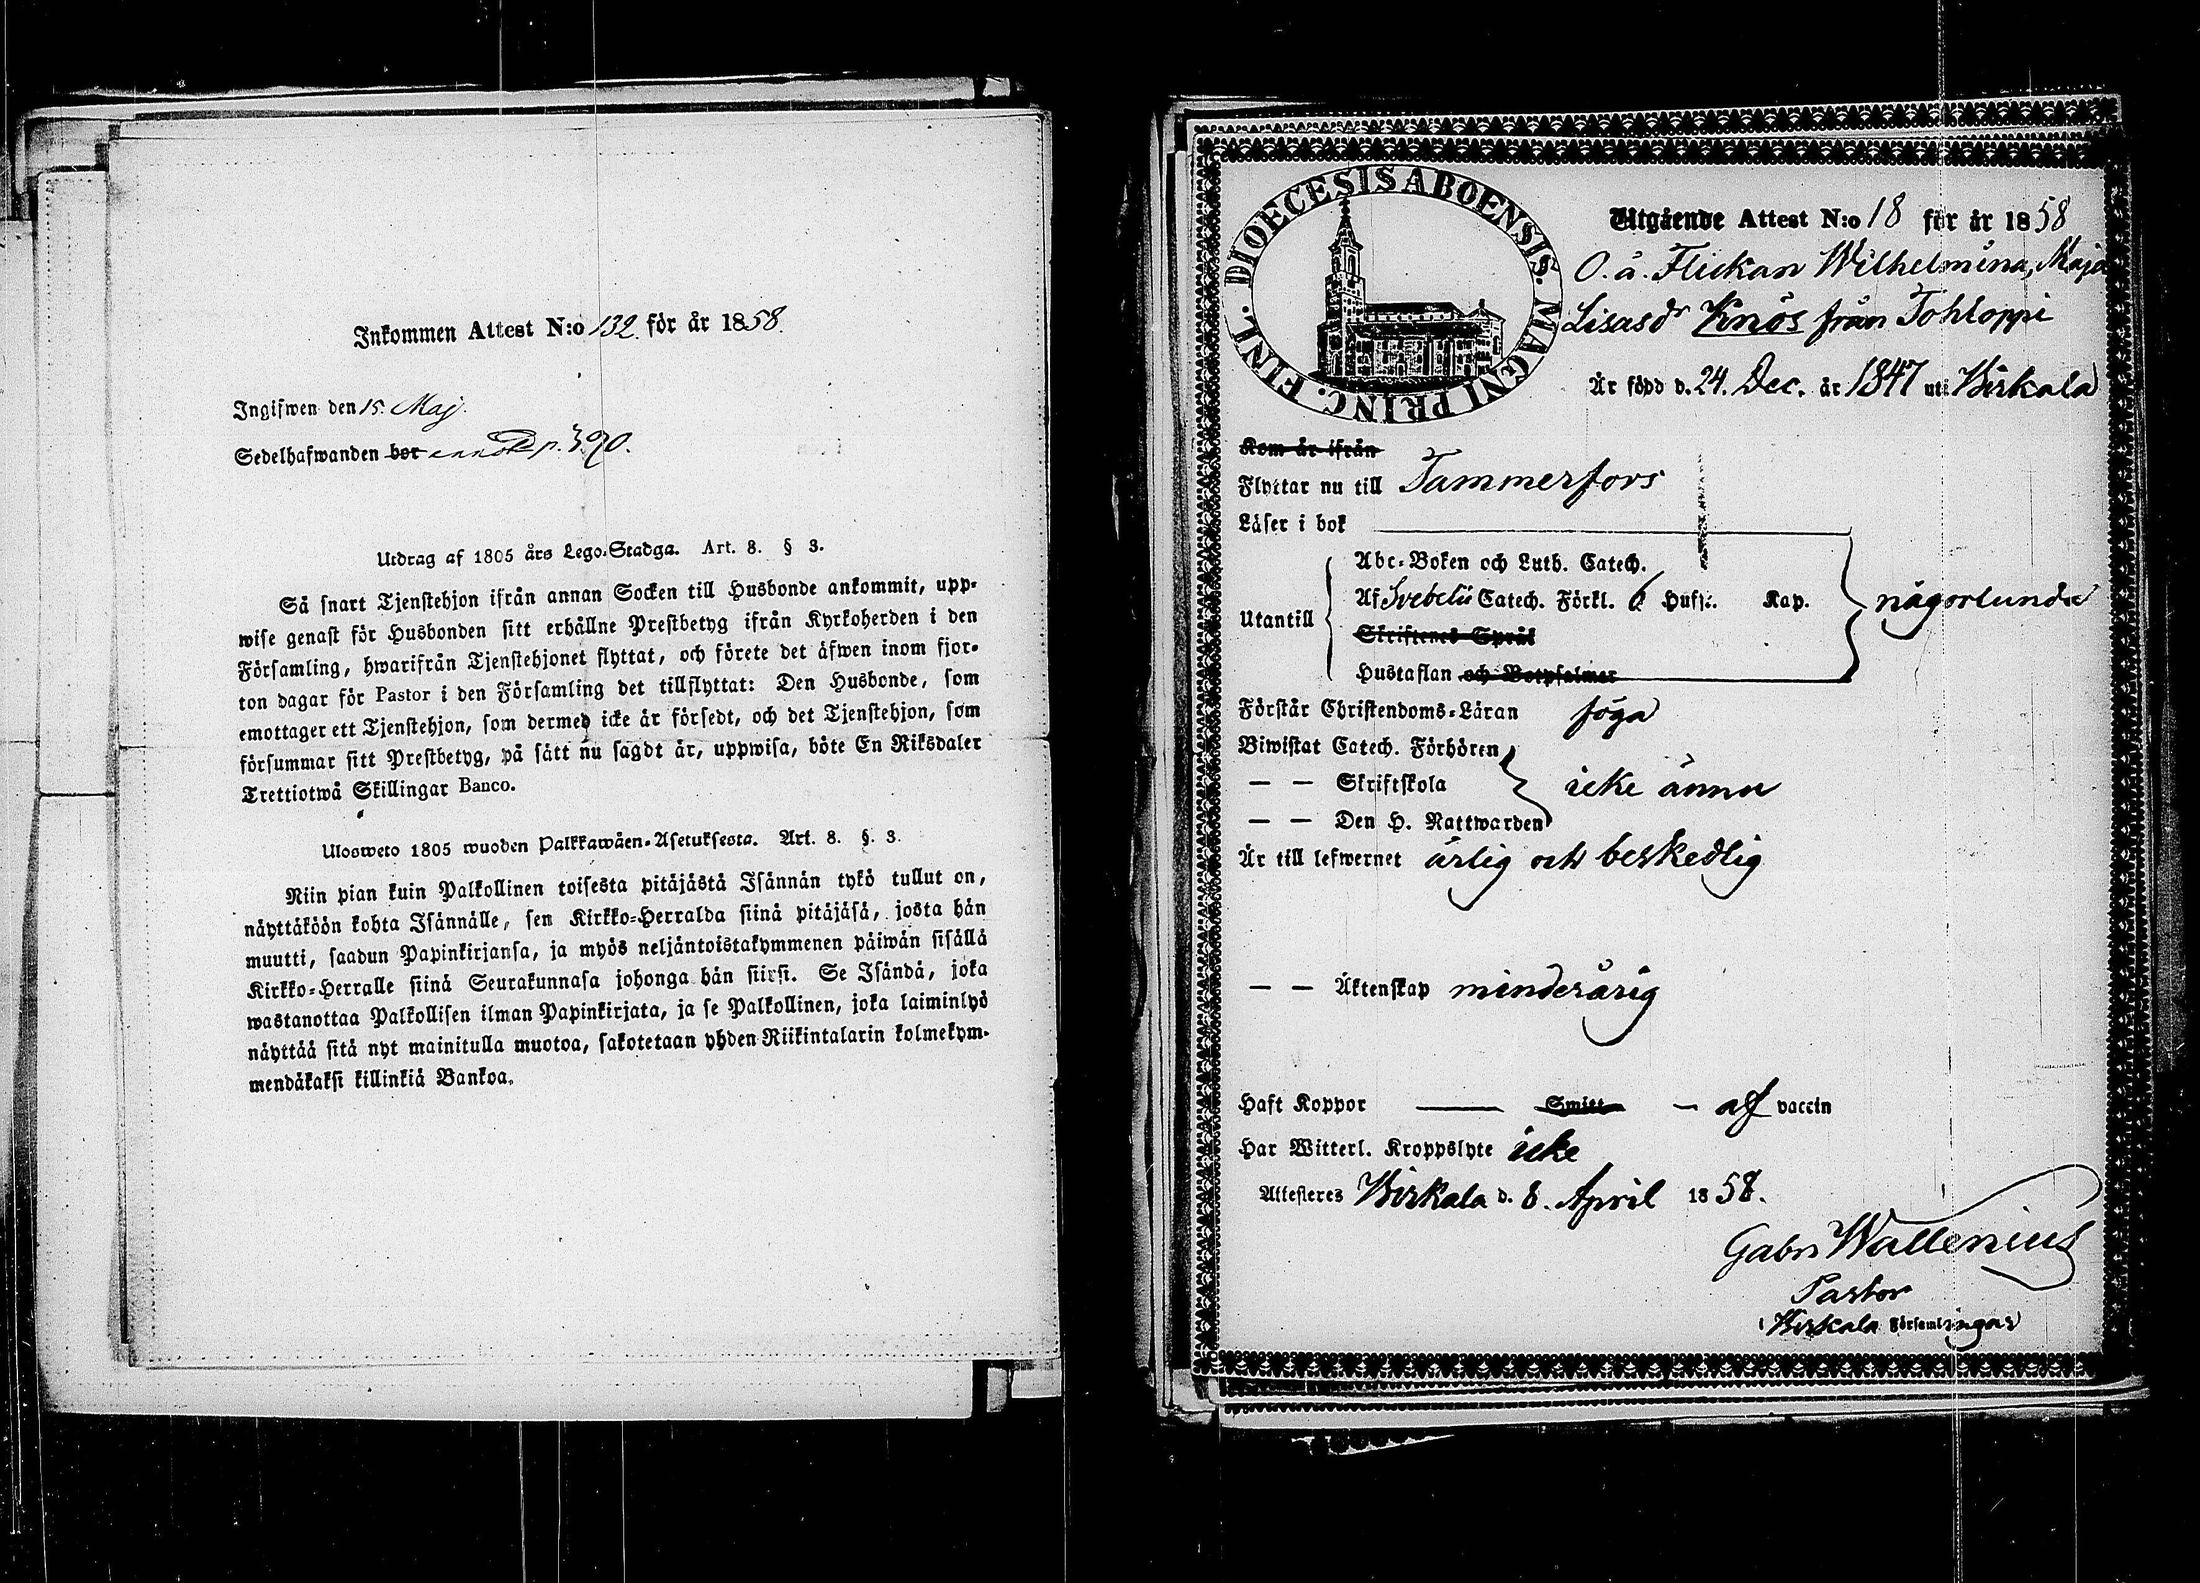 Inkommen Attest N:o 132. för år 1858.
Ingifwen den 15. Maj.
Sedelhafwanden bor annot. p. 390.
Utdrag af 1805 års Lego-Stadga. Art. 8. § 3.
Så snart Tjenstehjon ifrån annan Socken till Husbonde ankommit, upp-
wise genast för Husbonden sitt erhållne Prestbetyg ifrån Kyrkoherden i den
Församling, hwarifrån Tjenstehjonet flyttat, och förete det äfwen inom fjor-
ton dagar för Pastor i den Församling det tillflyttat: Den Husbonde, som
emottager ett Tjenstehjon, som dermed icke är försedt, och det Tjenstehjon, som
försummar sitt Prestbetyg, på sätt nu sagdt är, uppwisa, böte En Riksdaler
Trettiotwå Skillingar Banco.
Ulosweto 1805 wuoden Palkkawäen-Asetuksesta. Art. 8. §. 3.
Niin pian kuin Palkollinen toisesta pitäjästä Isännän tykö tullut on,
näyttäköön kohta Isännälle, sen Kirkko-Herralda siinä pitäjäsä, josta hän
muutti, saadun Papinkirjansa, ja myös neljäntoistakymmenen päiwän sisällä
Kirkko-Herralle siinä Seurakunnasa johonga hän siirsi. Se Isändä, joka
wastanottaa Palkollisen ilman Papinkirjata, ja se Palkollinen, joka laiminlyö
näyttää sitä nyt mainitulla muotoa, sakotetaan yhden Riikintalarin kolmekym-
mendäkaksi killinkiä Bankoa.
DIOECESIS ABOENSIS. MAGNI PRINC. FINL.
Utgående Attest N:o 18 för år 1858
O. ä. Flickan Wilhelmina, Maja
Lisasdr Knös från Tohloppi
Är född d. 24. Dec. år 1847 uti Birkala
Kom år ifrån
Flyttar nu till Tammerfors
Läser i bok
Abc-Boken och Luth. Catech.
Utantill Af Svebelii Catech. Förkl. 6 Hufst. Kap. någorlunda
Skriftenes Språk
Hustaflan och Botpsalmer
Förstår Christendoms-Läran föga
Biwistat Catech. Förhören
— — Skriftskola icke ännu
— — Den H. Nattwarden
Är till lefwernet ärlig och beskedlig
— — Äktenskap minderårig
Haft Koppor — Smitt — af vaccin
Har Witterl. Kroppslyte icke
Attesteres Birkala d. 8. April 1858.
Gabr Wallenius
Pastor
i Birkala Församlingar